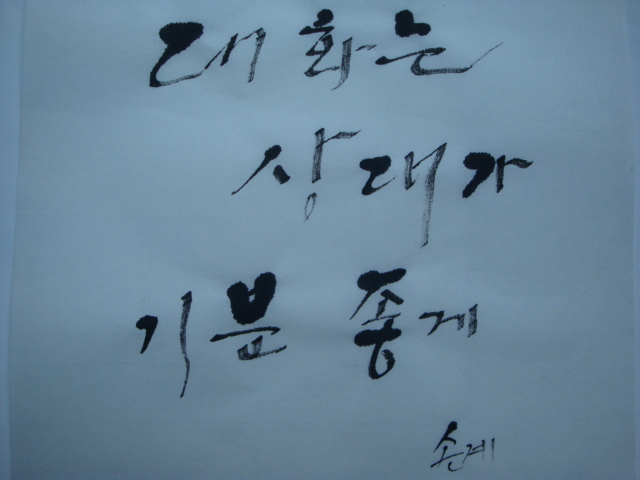 대화는
상대가
기분 좋게
손계